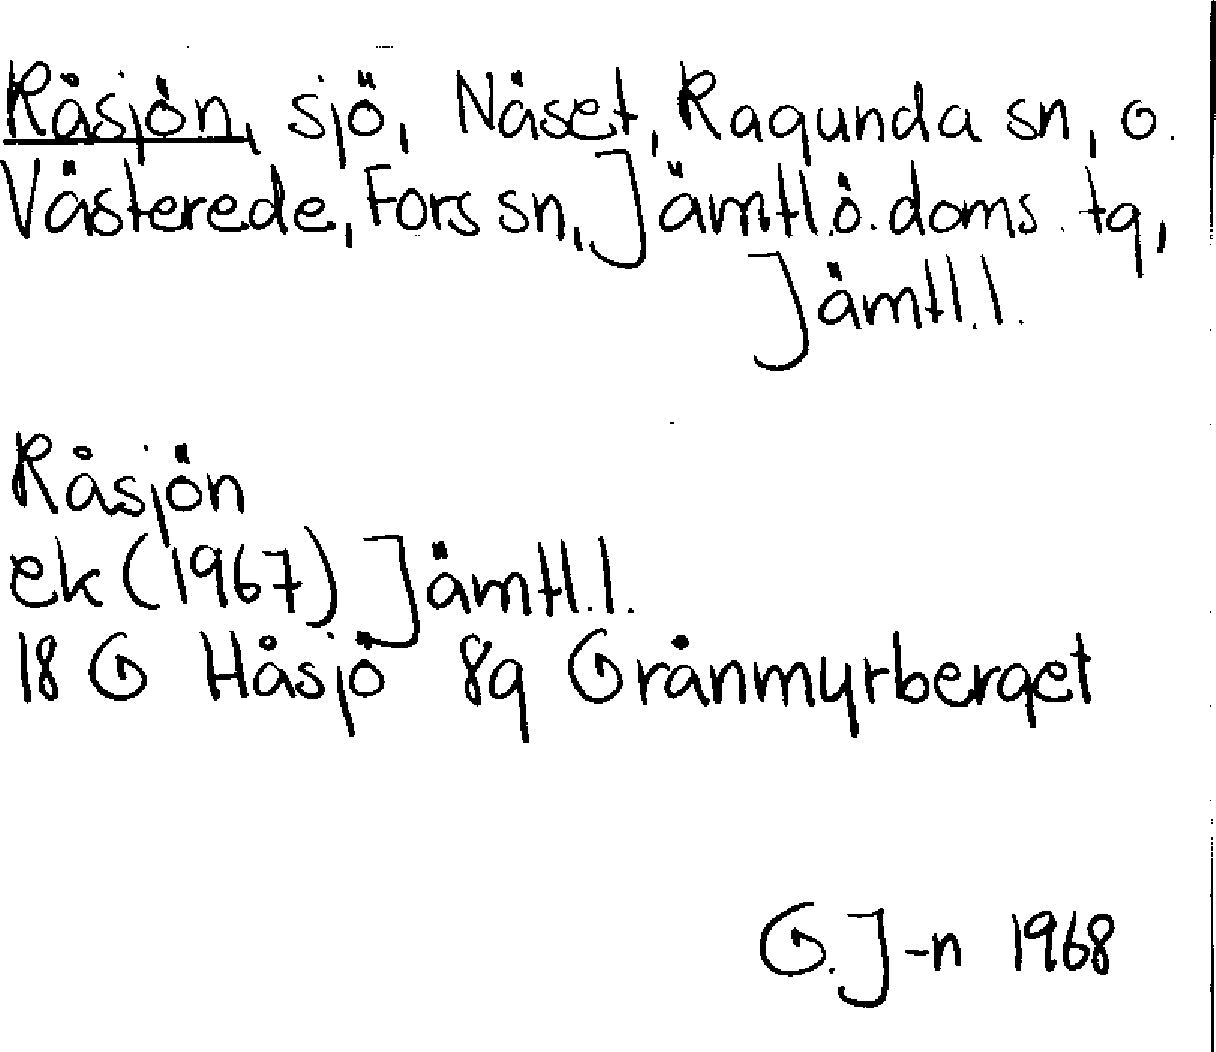 Råsjön, sjö, Näset, Ragunda sn, o.
Västerede, Fors sn, Jämtl.ö.doms.tg,
Jämtl.l.
Råsjön
ek (1967) Jämtl.l.
18 G Håsjö 8g Grånmyrberget
G.J-n 1968